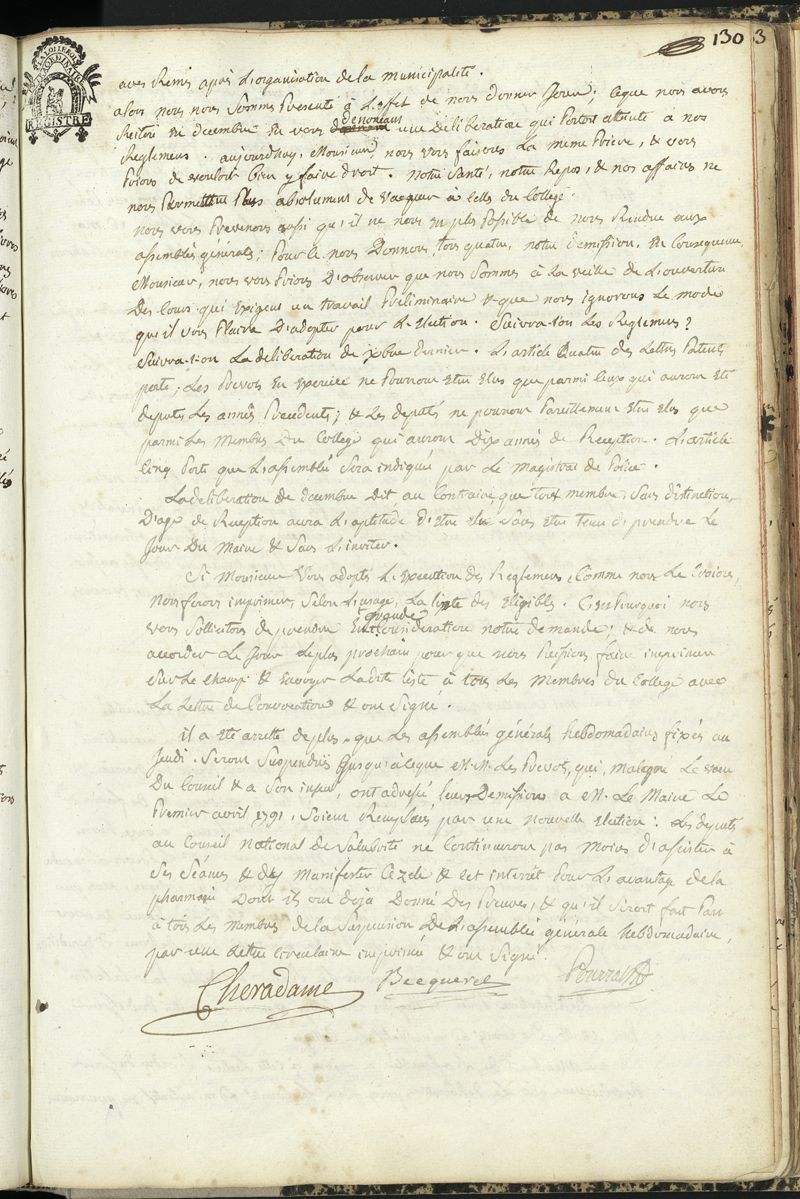 130 3
LA LOI LE ROI
REGISTRE
avés Remis après L'organisation de la municipalité.
alors nous nous Sommes Presenté à L'effet de nous donner Jour; ceque nous avons
Reitéré En decembre En vous denoncant une Deliberation qui Portoit atteinte à nos
Reglemens. aujourdhuy, Monsieur, nous vous faisons La meme Priere, & vous
Prions de vouloir bien y faire droit. notre Santé, notre Repos, & nos affaires ne
nous Permettent Plus absolument de vacquer à celles du College.
nous vous Prevenons aussi qu'il ne nous Est plus Possible de nous Rendre aux
assemblés générales; Pourquoi nous Donnons, tous quatre, notre Demission. En Consequence,
Monsieur, nous vous Prions D'observer que nous Sommes à La veille de L'ouverture
Des Cours qui Exigent un travail Préliminaire & que nous ignorons Le mode
qu'il vous Plaira D'adopter pour L'Election. Suivra-t-on Les Reglemens?
Suivra-t-on La deliberation de Xbre Dernier. L'article Quatre des Lettres Patentes
porte; Les Prevots En Exercice ne Pourront Etre Elus que parmi Ceux qui auront Eté
deputés Les années Precedentes; & Les deputés ne pourront Pareillement Etre Elus que
parmi Les Membres Du College qui auront Dix années de Reception. L'article
Cinq Porte que L'assemblée Sera indiquée par Le Magistrat de Police.
La deliberation de decembre Dit au Contraire, que tout membre, Sans distinction
D'age de Reception aura L'aptitude D'Etre Elu Sans Etre tenu de prendre Le
Jour Du Maire & Sans L'inviter.
Si Monsieur Vous adoptés L'Execution des Reglemens, Comme nous Le Croions,
Nous ferons imprimer, Selon L'usage, La liste des Eligibles. C'est Pourquoi nous
vous Sollicitons de prendre En grande Consideration notre Demande; & de nous
accorder Le Jour Le plus prochain pour que nous Puissions faire imprimer
Sur Le Champ & Envoyer Ladite Liste à tous Les Membres Du College avec
La Lettre de Convocation & ont Signé.
il a Eté arreté de plus que Les assemblés générales hebdomadaires fixés au
Jeudi Seront Suspendües Jusqu'à ceque M.M. Les Prevots, qui, malgré Le voeu
Du Conseil & a Son insçu, ont adressé leur Demission a M. Le Maire Le
Premier avril 1791, Soient Remplacés par une nouvelle Election: Les deputés
au Conseil National de Salubrité ne Continueront pas Moins d'assister à
Ses Séances & d'y Manifester Ce Zele & Cet interêt Pour L'avantage de la
pharmacie Dont ils ont deja Donné Des Preuves, & qu'il Seroit fait Part
à tous Les Membres de la Suspension De L'assemblée générale hebdomadaire,
par une Lettre Circulaire imprimée & ont Signé.
Cheradame Becquerel